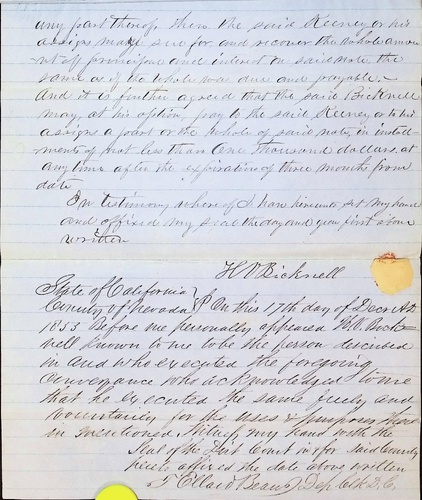 any part thereof, then the said Keeney or his
assigns make sue for and recover the whole amou
nt of principal and interest on said note the
same as if the whole was due and payable.
And it is further agreed that the said Bicknell
may, at his option, pay to the said Keeney or to his
assigns a part or the whole of said note, in install-
ments of not less than One thousand dollars, at
any time after the expiration of three months from
date
In testimony whereof I have hereunto set my hand
and affixed my seal the day and year first above
written
H O Bicknell
State of California
County of Nevada } On this 17th day of Decr AD
1853 Before me personally appeared H.O. Bick=
nell known to me to be the person described
in and who executed the foregoing
conveyance who acknowledged to me
that he executed the same freely and
voluntarily for the uses & purposes there
in mentioned Witness my hand with the
Seal of the Dist Court in & for said County
hereto affixed the date above written
Ellard Beans Dep Clk D.C.